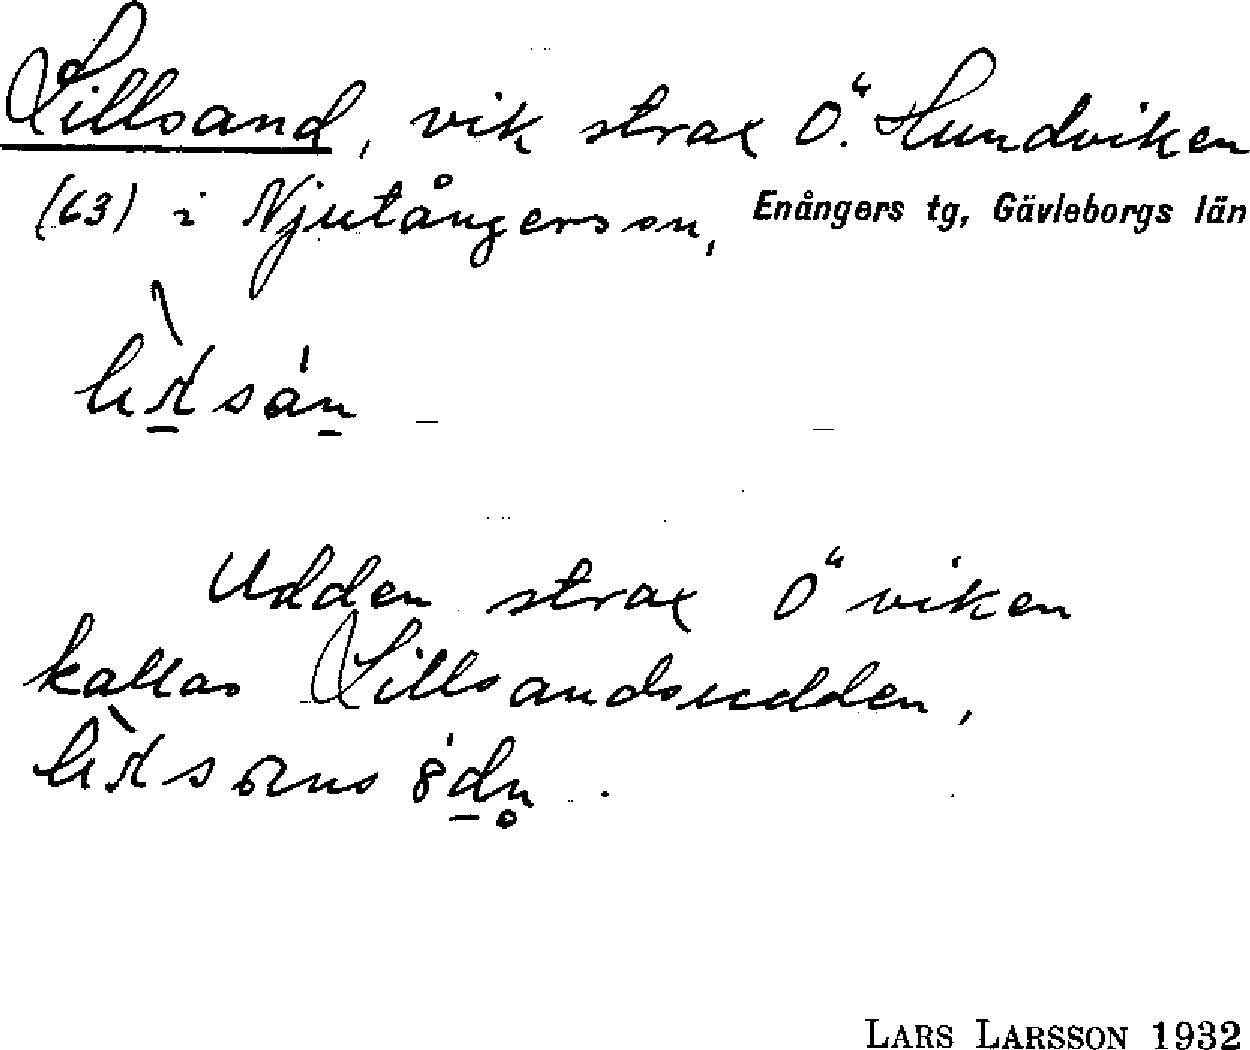 Lillsand, vik strax Ö. Hundviken
(63) i Njutångers sn, Enångers tg, Gävleborgs län
Udden strax Ö viken
kallas Lillsandsudden,
LARS LARSSON 1932